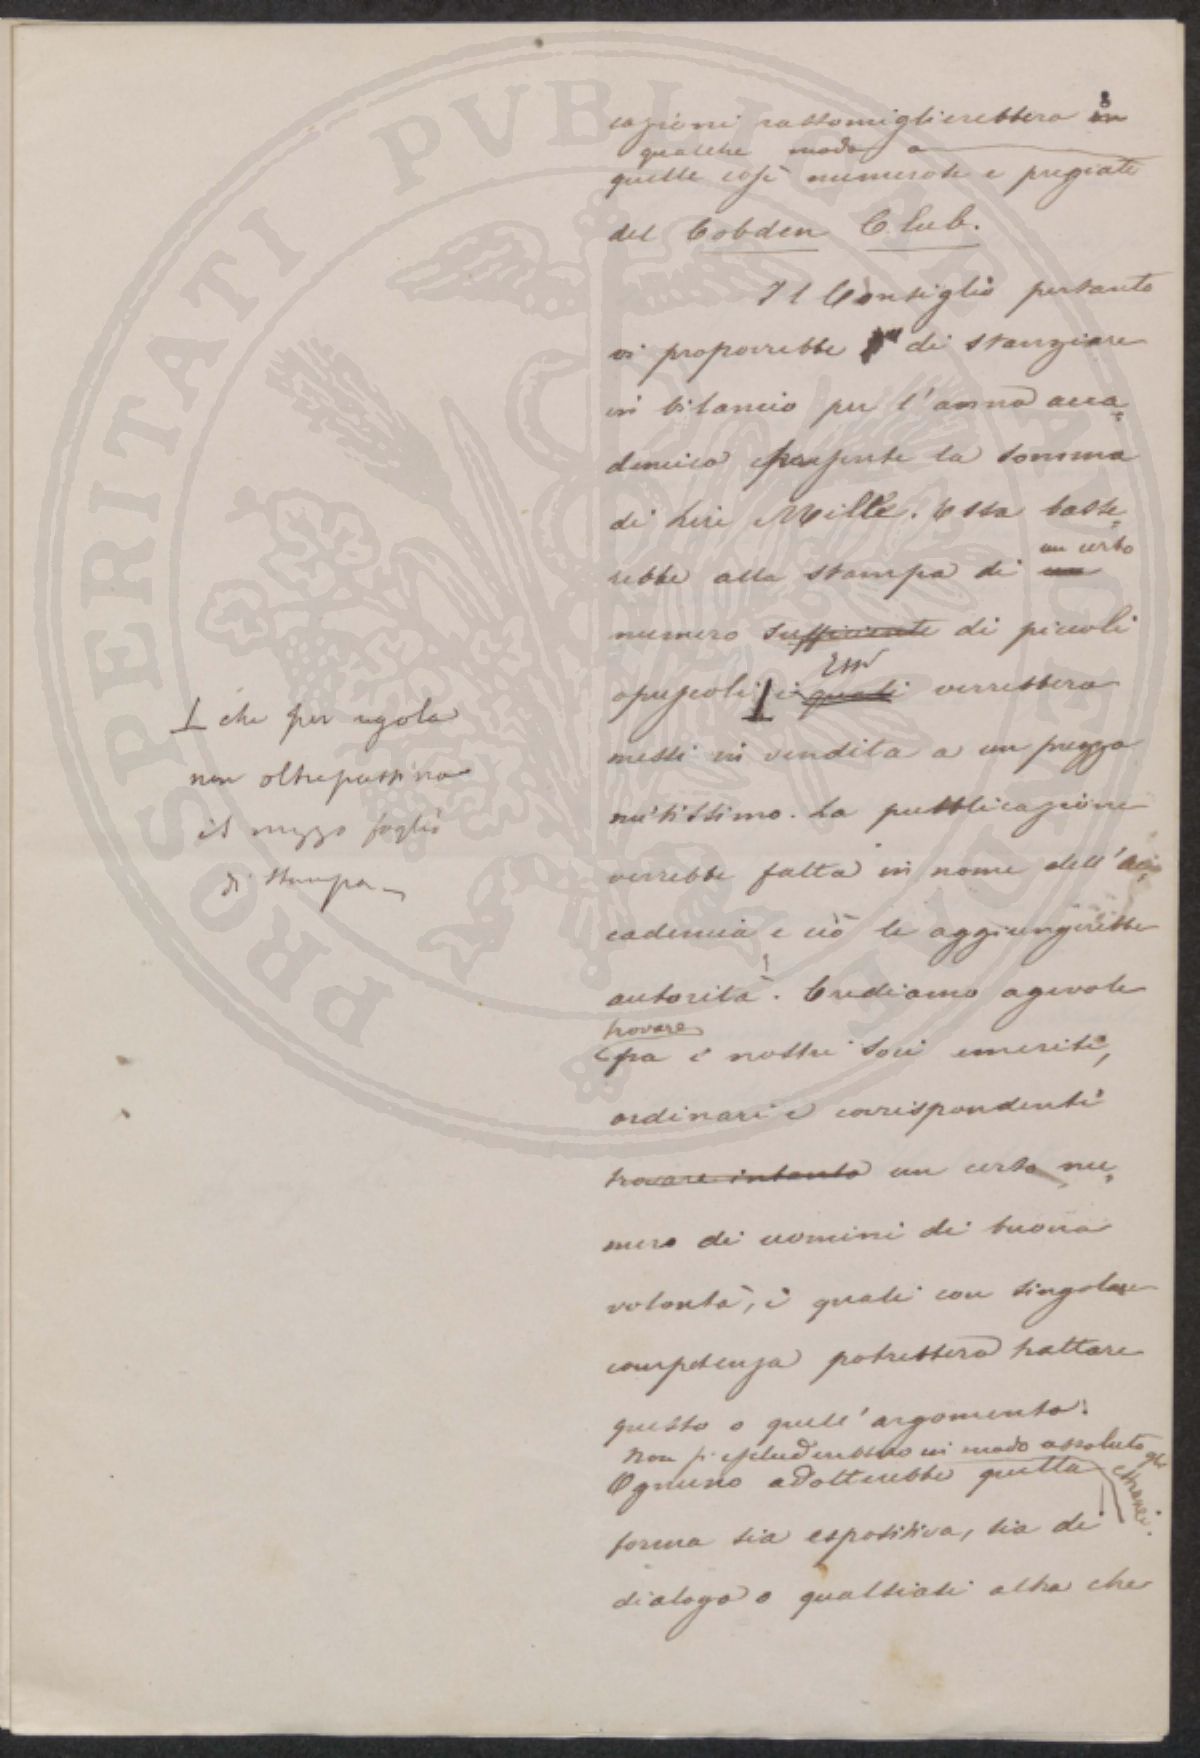 PROSPERITATI PVBLICAE AVGENDAE
8
cazioni rassomiglierebbero in
qualche modo a
quelle così numerose e pregiate
del Cobden Club.
Il Consiglio pertanto
vi proporrebbe di stanziare
in bilancio per l'anno acca-
demico presente la somma
di Lire Mille. Essa baste-
rebbe alla stampa di un certo
numero sufficiente di piccoli
opuscoli ⊥ i quali Essi verrebbero
⊥ che per regola
non oltrepassino
il mezzo foglio
di stampa
messi in vendita a un prezzo
mitissimo. La pubblicazione
verrebbe fatta in nome dell'Ac-
cademia e ciò le aggiungerebbe
autorità. Crediamo agevole
trovare
fra i nostri soci emeriti,
ordinari e corrispondenti
trovare intanto un certo nu-
mero di uomini di buona
volontà, i quali con singolare
competenza potrebbero trattare
questo o quell'argomento.
Non si escluderebbero in modo assoluto gli estranei.
Ognuno adotterebbe quella
forma sia espositiva, sia di
dialogo o qualsiasi altra che